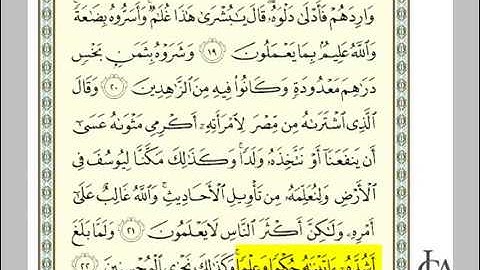 وَارِدَهُمْ فَأَدْلَىٰ دَلْوَهُۥ ۖ قَالَ يَـٰبُشْرَىٰ هَـٰذَا غُلَـٰمٌ ۚ وَأَسَرُّوهُ بِضَـٰعَةً ۚ
وَٱللَّهُ عَلِيمٌۢ بِمَا يَعْمَلُونَ ١٩ وَشَرَوْهُ بِثَمَنٍۭ بَخْسٍ
دَرَٰهِمَ مَعْدُودَةٍ وَكَانُوا۟ فِيهِ مِنَ ٱلزَّٰهِدِينَ ٢٠ وَقَالَ
ٱلَّذِى ٱشْتَرَىٰهُ مِن مِّصْرَ لِٱمْرَأَتِهِۦٓ أَكْرِمِى مَثْوَىٰهُ عَسَىٰٓ
أَن يَنفَعَنَآ أَوْ نَتَّخِذَهُۥ وَلَدًا ۚ وَكَذَٰلِكَ مَكَّنَّا لِيُوسُفَ فِى
ٱلْأَرْضِ وَلِنُعَلِّمَهُۥ مِن تَأْوِيلِ ٱلْأَحَادِيثِ ۚ وَٱللَّهُ غَالِبٌ عَلَىٰٓ
أَمْرِهِۦ وَلَـٰكِنَّ أَكْثَرَ ٱلنَّاسِ لَا يَعْلَمُونَ ٢١ وَلَمَّا بَلَغَ
أَشُدَّهُۥٓ ءَاتَيْنَـٰهُ حُكْمًا وَعِلْمًا ۚ وَكَذَٰلِكَ نَجْزِى ٱلْمُحْسِنِينَ ٢٢